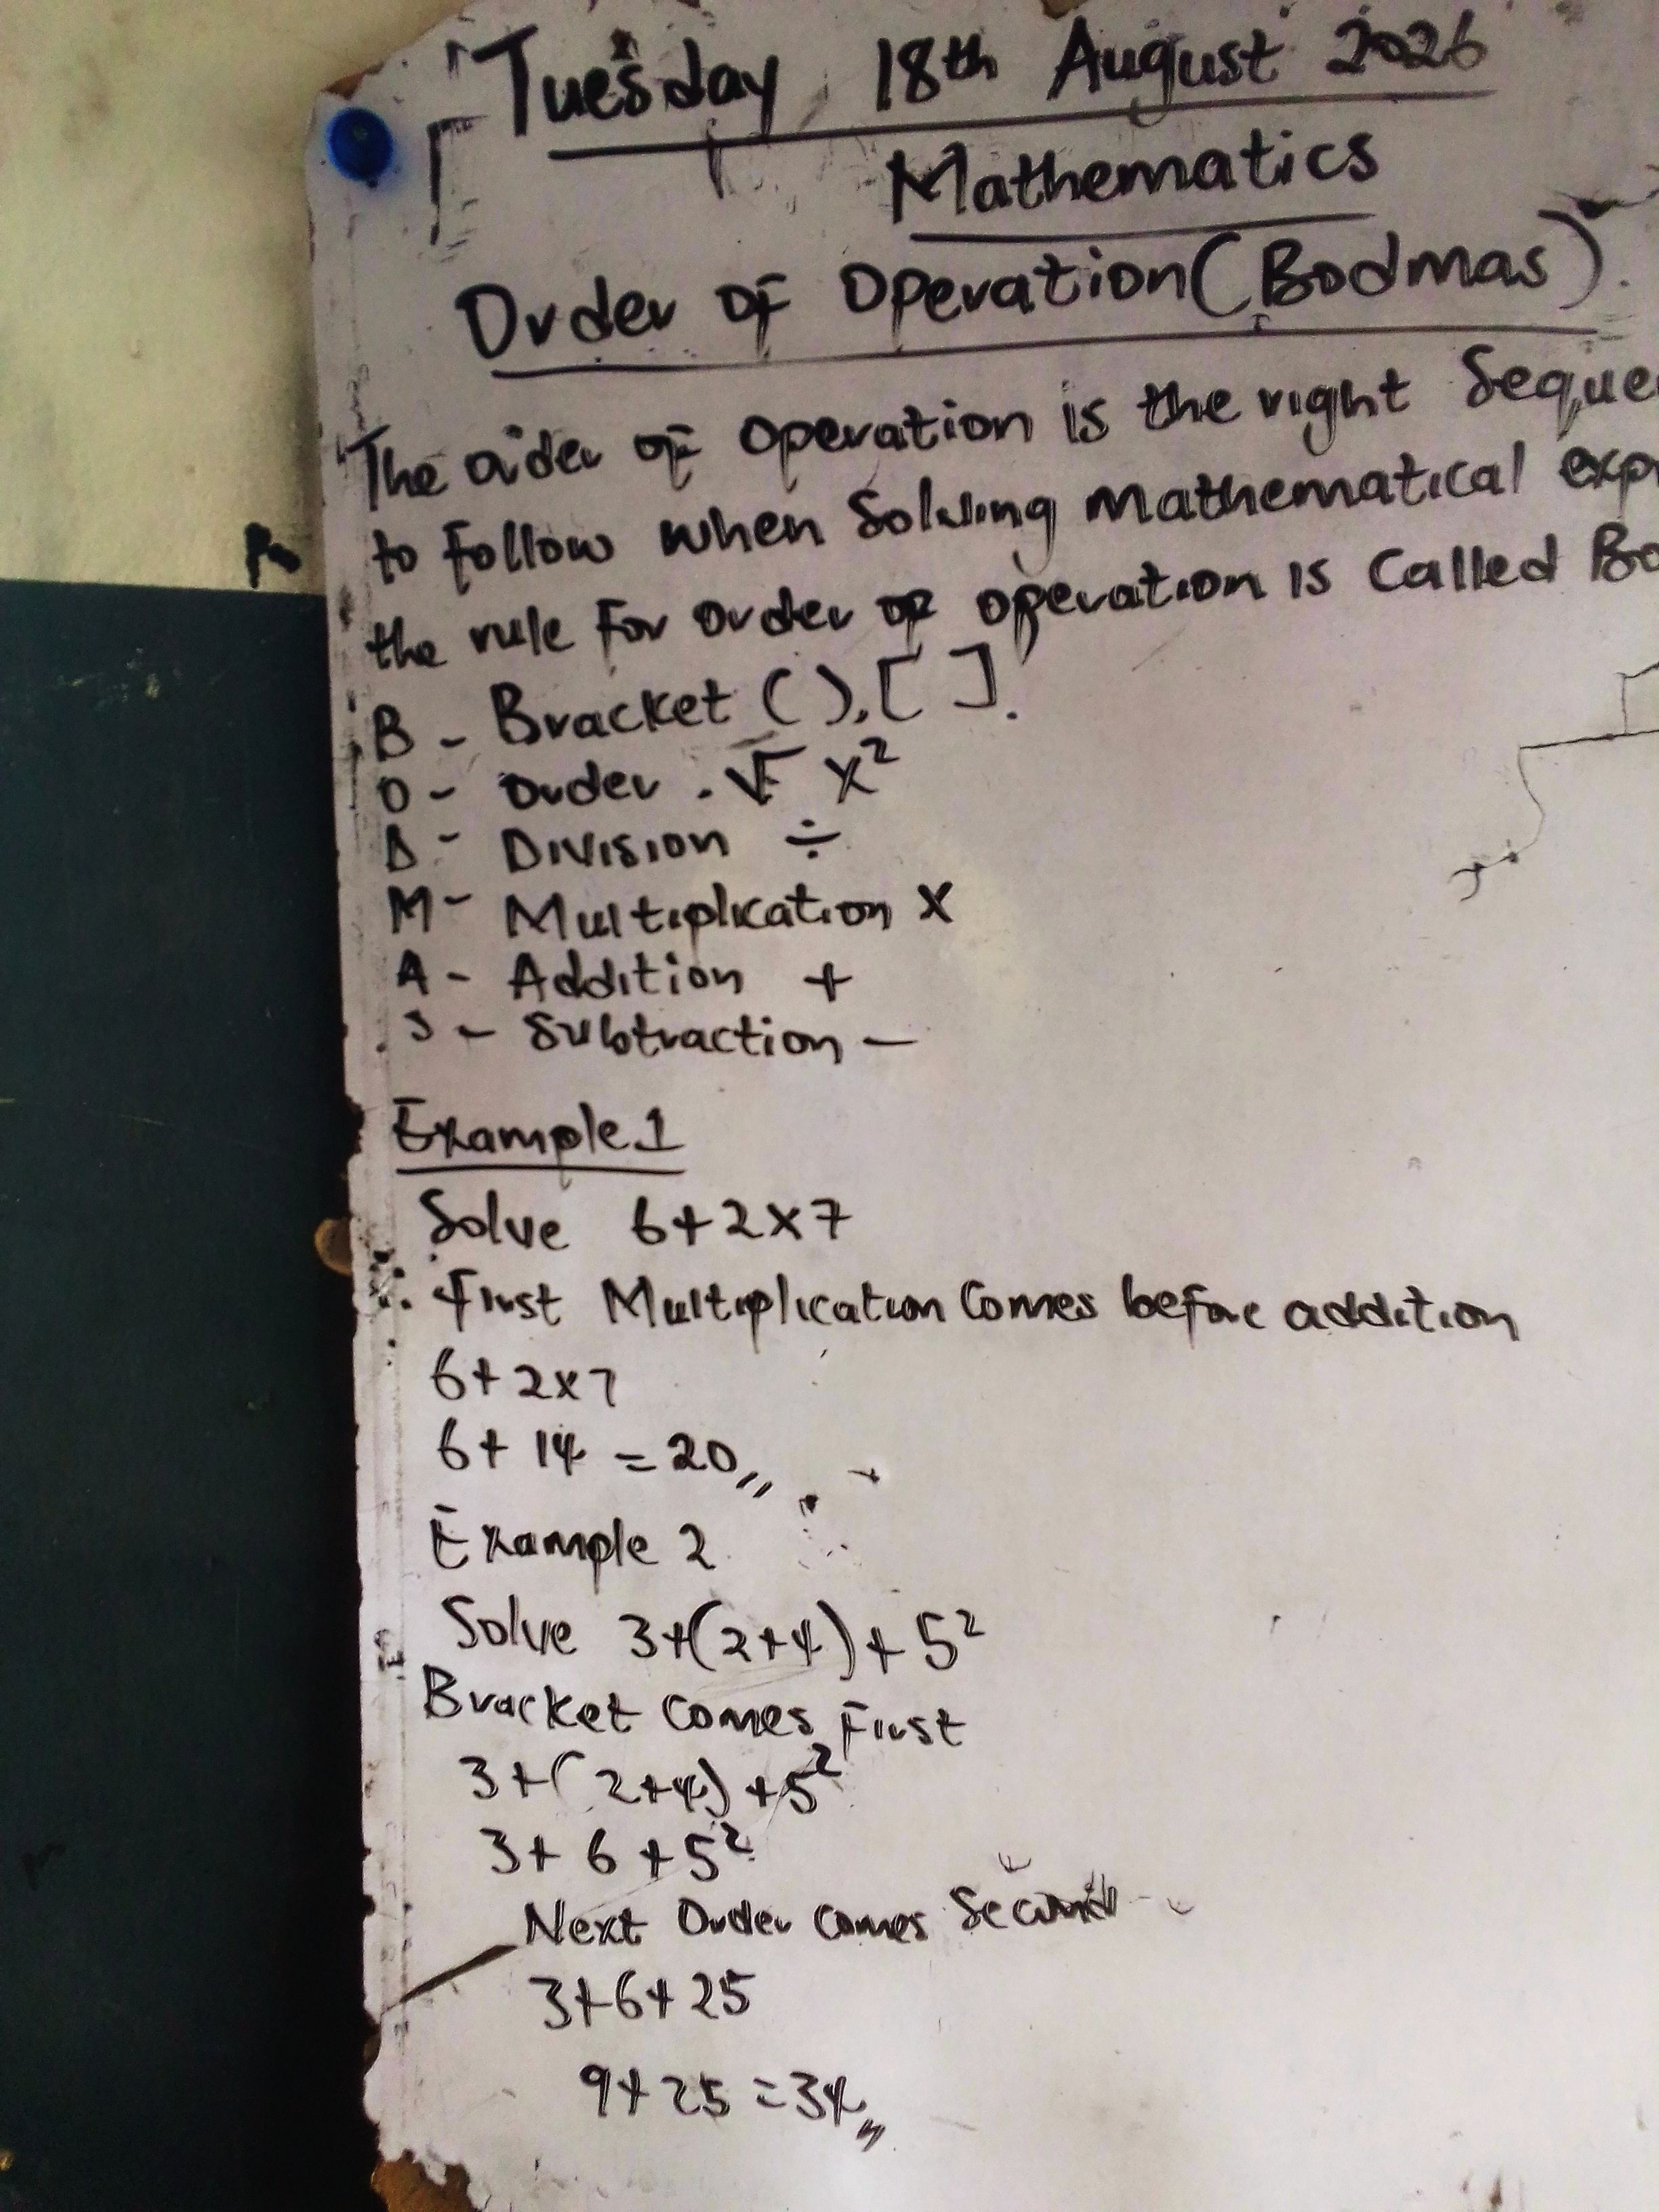 Tuesday 18th August 2026
Mathematics
Order of Operation (Bodmas).
The order of operation is the right Seque
to follow when Solving mathematical exp
the rule for order of operation is Called Bo
B - Bracket ( ), [ ].
O - Order . √ x²
D - Division ÷
M - Multiplication ×
A - Addition +
S - Subtraction -
Example 1
Solve 6+2×7
First Multiplication Comes before addition
6+2×7
6+14 = 20,,
Example 2
Solve 3+(2+4)+5²
Bracket comes First
3+(2+4)+5²
3+6+5²
Next Order comes Second
3+6+25
9+25=34,,